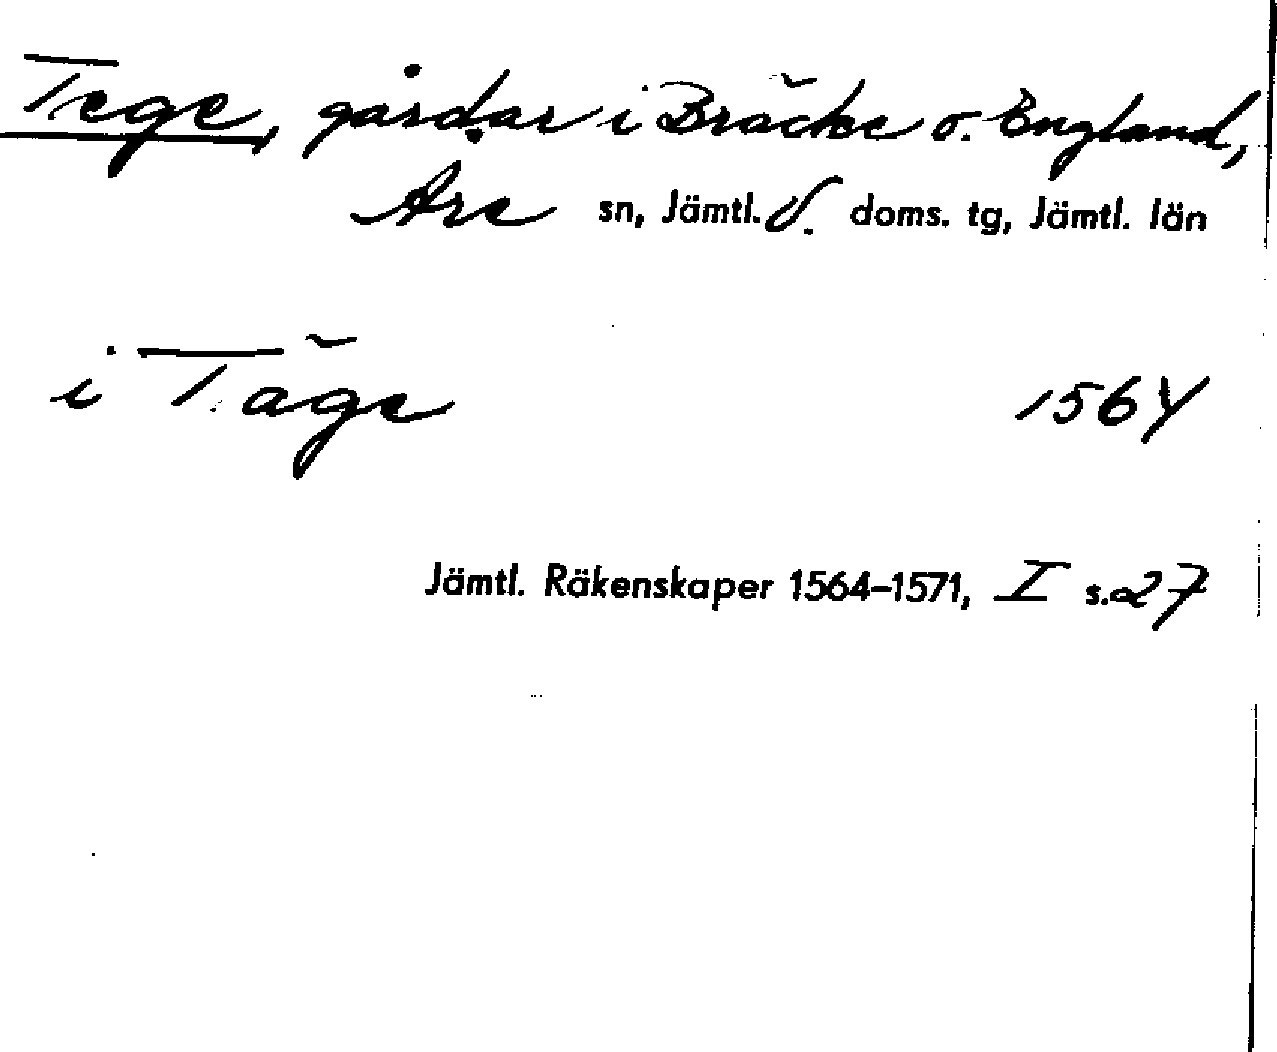 Tege, gårdar i Bräcke o. England,
Åre sn, Jämtl. V. doms. tg, Jämtl. län
i Täge 1564
Jämtl. Räkenskaper 1564-1571, I s. 27